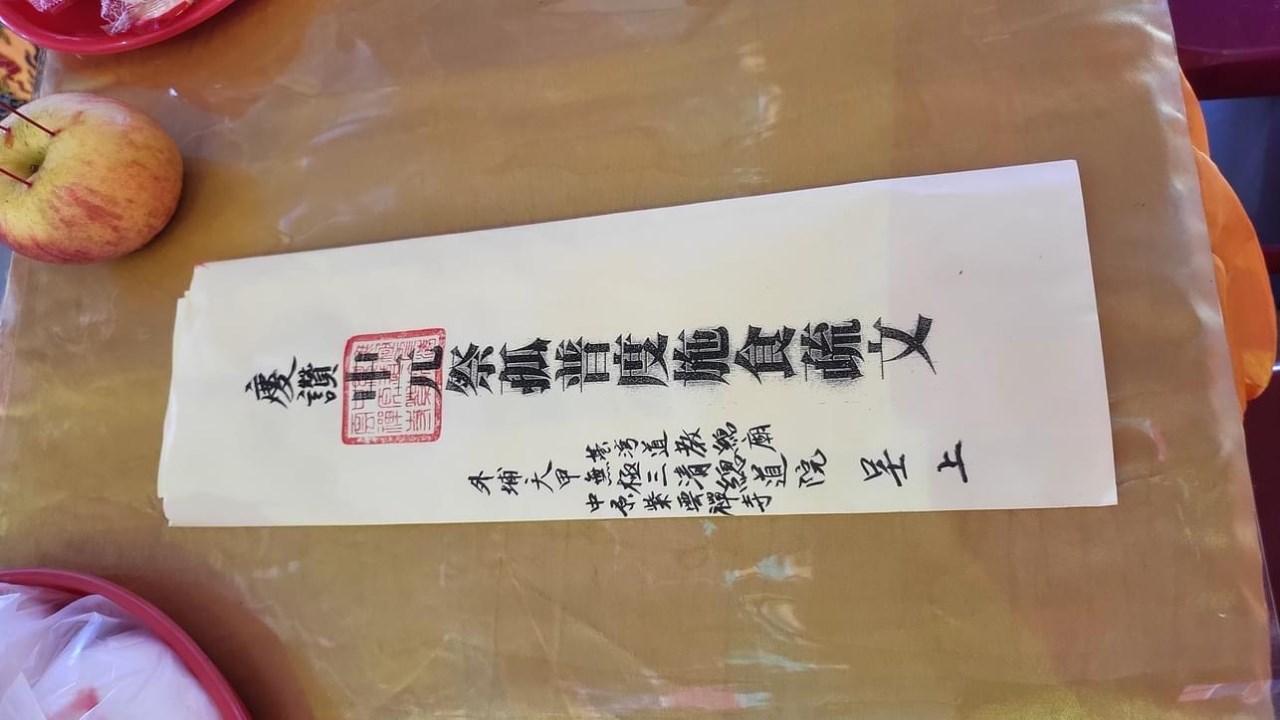 慶讚中元祭孤普度施食疏文
外埔大甲
臺灣道教總廟
無極三清總道院
中原紫雲禪寺
呈上